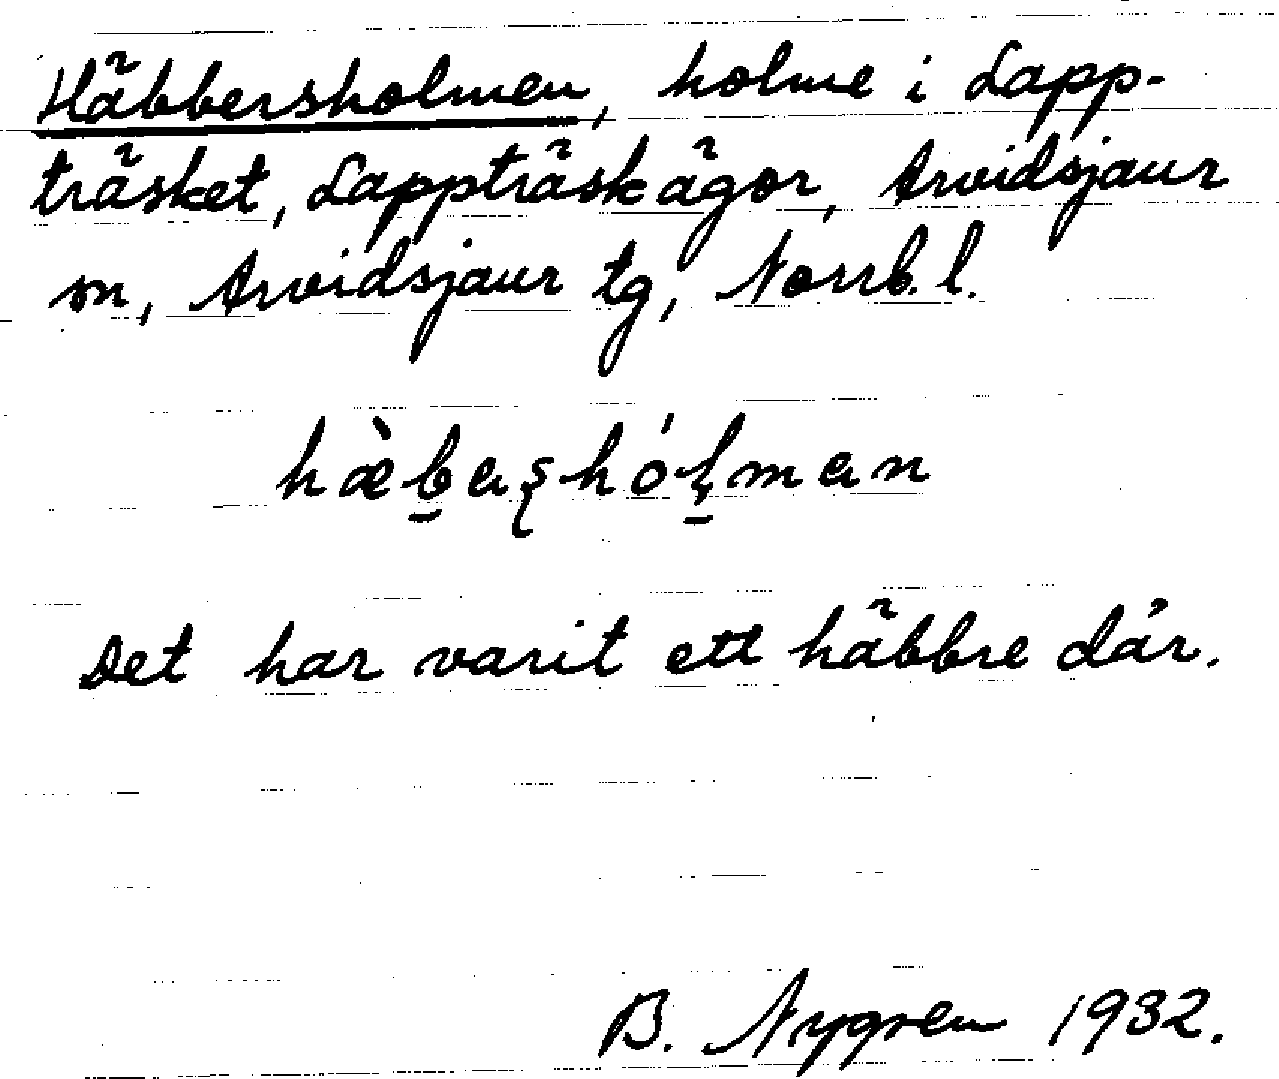 Häbbersholmen, holme i Lapp-
träsket, Lappträsk ägor, Arvidsjaur
sn, Arvidsjaur tg, Norrb. l.
hæ̀b̲eʂhóḷ̲men
Det har varit ett häbbre där.
B. Nygren 1932.